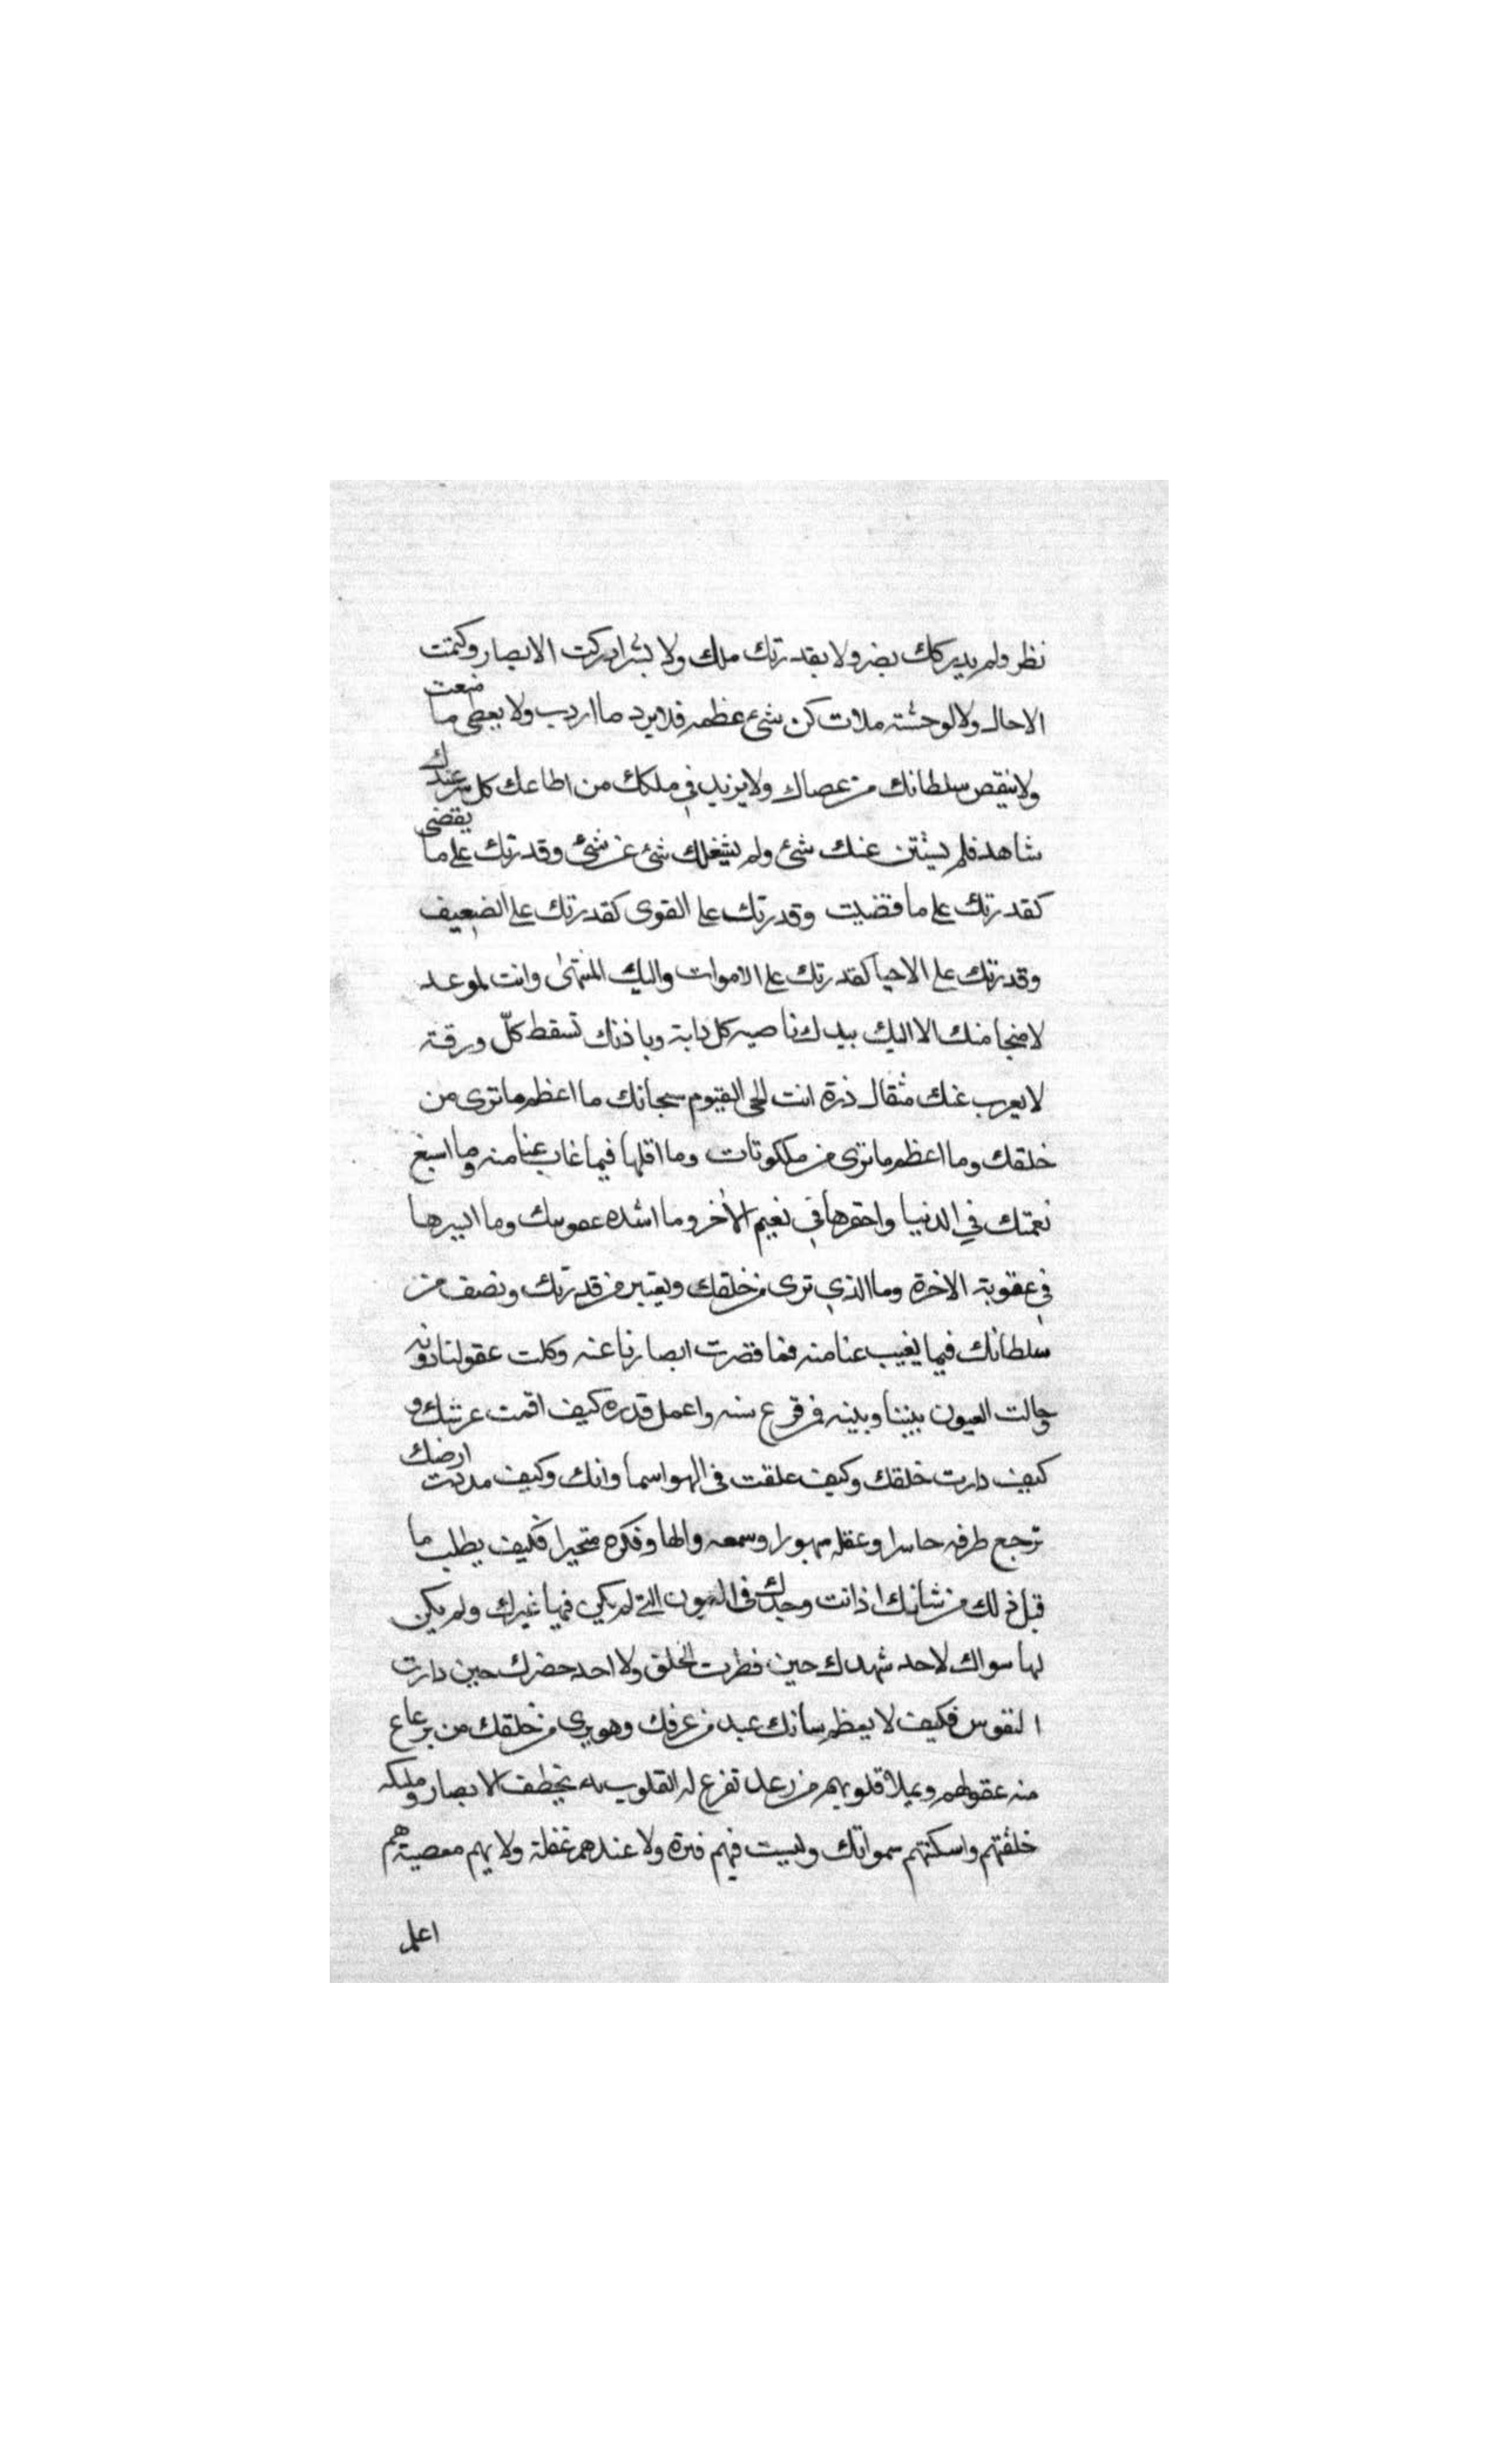 نظر ولم يدركك بصر ولا يقدرتك ملك ولا بشر ادركت الابصار وكتمت
الاحال ولا لوحشته ملات كن شئ عظمه فلا يرد ما اردت ولا يعطى ما منعت
ولا ينقص سلطانك من عصاك ولا يزيد في ملكك من اطاعك كل سر عندك
شاهد فلم يستتن عنك شئ ولم يشغلك شئ عن شئ وقدرتك على ما يقضى
كقدرتك على ما قضيت وقدرتك على القوى كقدرتك على الضعيف
وقدرتك على الاحيا كقدرتك على الاموات واليك المنتهى وانت لموعد
لا منجا منك الا اليك بيدك ناصيه كل دابة وباذنك تسقط كلّ ورقة
لا يعرب عنك مثقال ذرة انت الحى القيوم سبحانك ما اعظم ما ترى من
خلقك وما اعظم ما ترى من ملكوتات وما اقلها فيما غاب عنا منه وما اسبغ
نعمتك في الدنيا واحقرها في نعيم الاخر وما اشده وما
في عقوبة الاخرة وما الذي ترى من خلقك ويعتبر من قدرتك ونصف من
سلطانك فيما يغيب عنا منه فما قصرت ابصارنا عنه وكلت عقولنا دونه
وحالت العيون بيننا وبينه فمن قرع سنه واعمل قدره كيف اقمت عرشك و
كيف دارت خلقك وكيف علقت في الهوا سماوانك وكيف مددت ارضك
ترجع طرفه حاسرا وعقله مبهورا وسمعه والها وفكره متحيرا فكيف يطلب ما
قبل ذلك من شانك اذ انت وحدك في التي لم يكن فيها غيرك ولم يكن
لها سواك لاحد شهدك حين فطرت الخلق ولا احد حضرك حين دارت
النفوس فكيف لا يعظم سانك عبد من عرفك وهو يرى من خلقك من
منه عقولهم ويملا قلوبهم من رعد تفزع له القلوب يخطف الابصار وملكه
خلقتهم واسكنتهم سمواتك وليست فيهم فترة ولا عندهم غفلة ولا بهم معصية هم
اعلم